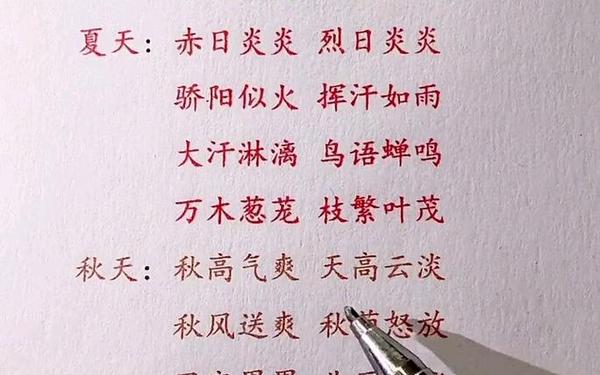 夏天：赤日炎炎 烈日炎炎
骄阳似火 挥汗如雨
大汗淋漓 鸟语蝉鸣
万木葱茏 枝繁叶茂
秋天：秋高气爽 天高云淡
秋风送爽 秋菊怒放